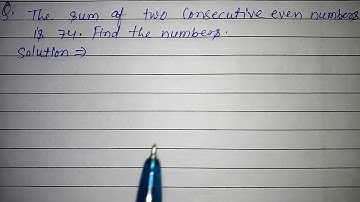 Q. The sum of two consecutive even numbers
is 74. Find the numbers.
Solution ⇒